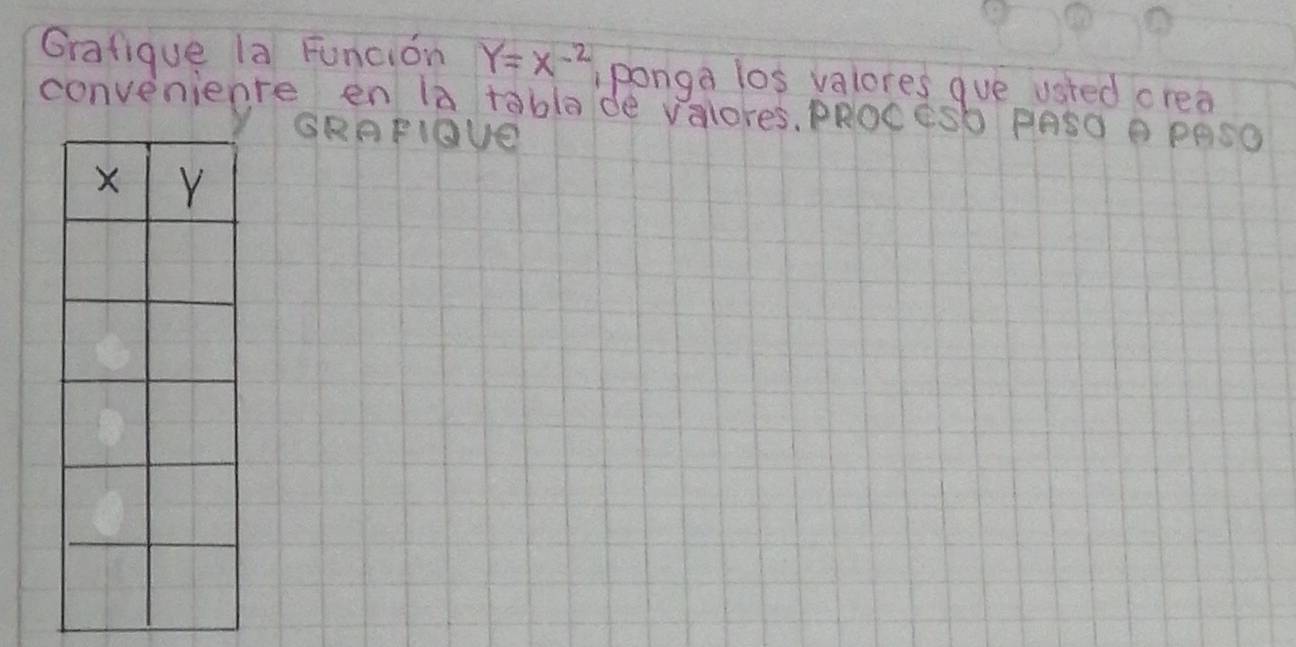 Grafique la Función Y=x⁻², ponga los valores que usted crea
conveniente en la tabla de valores. PROCESO PASO A PASO
y GRAFIQUE
X Y